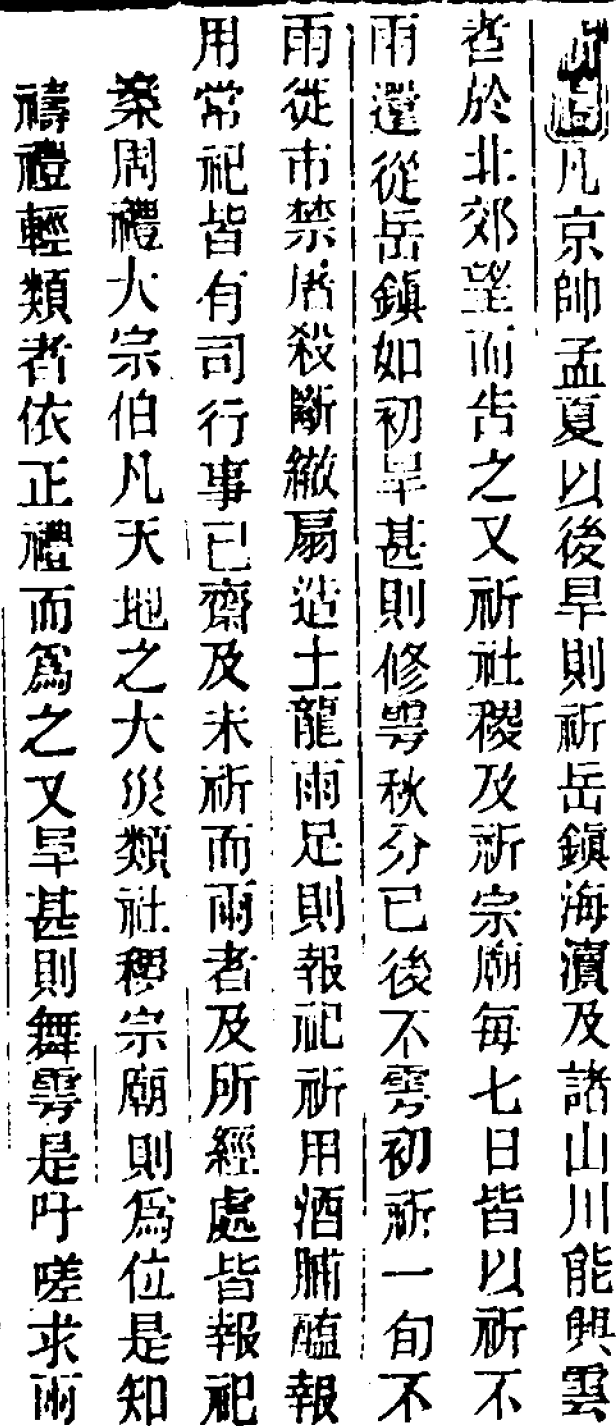 祈禱凡京帥孟夏以後旱則祈岳鎮海瀆及諸山川能興雲
者於北郊望而告之又祈社稷及祈宗廟每七日皆以祈不
雨還從岳鎮如初旱甚則修雩秋分已後不雩初祈一旬不
雨從市禁屠殺斷繖扇造土龍雨足則報祀祈用酒脯醢報
用常祀皆有司行事已齋及未祈而雨者及所經處皆報祀
案周禮大宗伯凡天地之大災類社稷宗廟則爲位是知
禱禮輕類者依正禮而爲之又旱甚則舞雩是吁嗟求雨